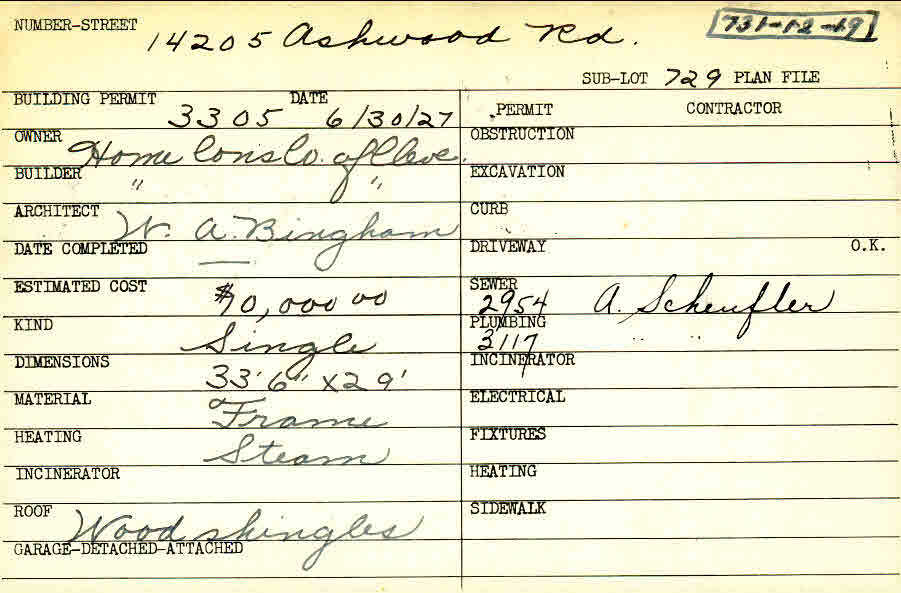 NUMBER-STREET 14205 Ashwood Rd. 731-12-19
SUB-LOT 729 PLAN FILE
BUILDING PERMIT 3305 DATE 6/30/27
OWNER Home Cons Co. of Cleve.
BUILDER " "
ARCHITECT W. A. Bingham
DATE COMPLETED —
ESTIMATED COST $10,000 00
KIND Single
DIMENSIONS 33'6" x 29'
MATERIAL Frame
HEATING Steam
INCINERATOR
ROOF Wood shingles
GARAGE-DETACHED-ATTACHED
PERMIT CONTRACTOR
OBSTRUCTION
EXCAVATION
CURB
DRIVEWAY O.K.
SEWER 2954 A. Scheufler
PLUMBING 3117 " "
INCINERATOR
ELECTRICAL
FIXTURES
HEATING
SIDEWALK